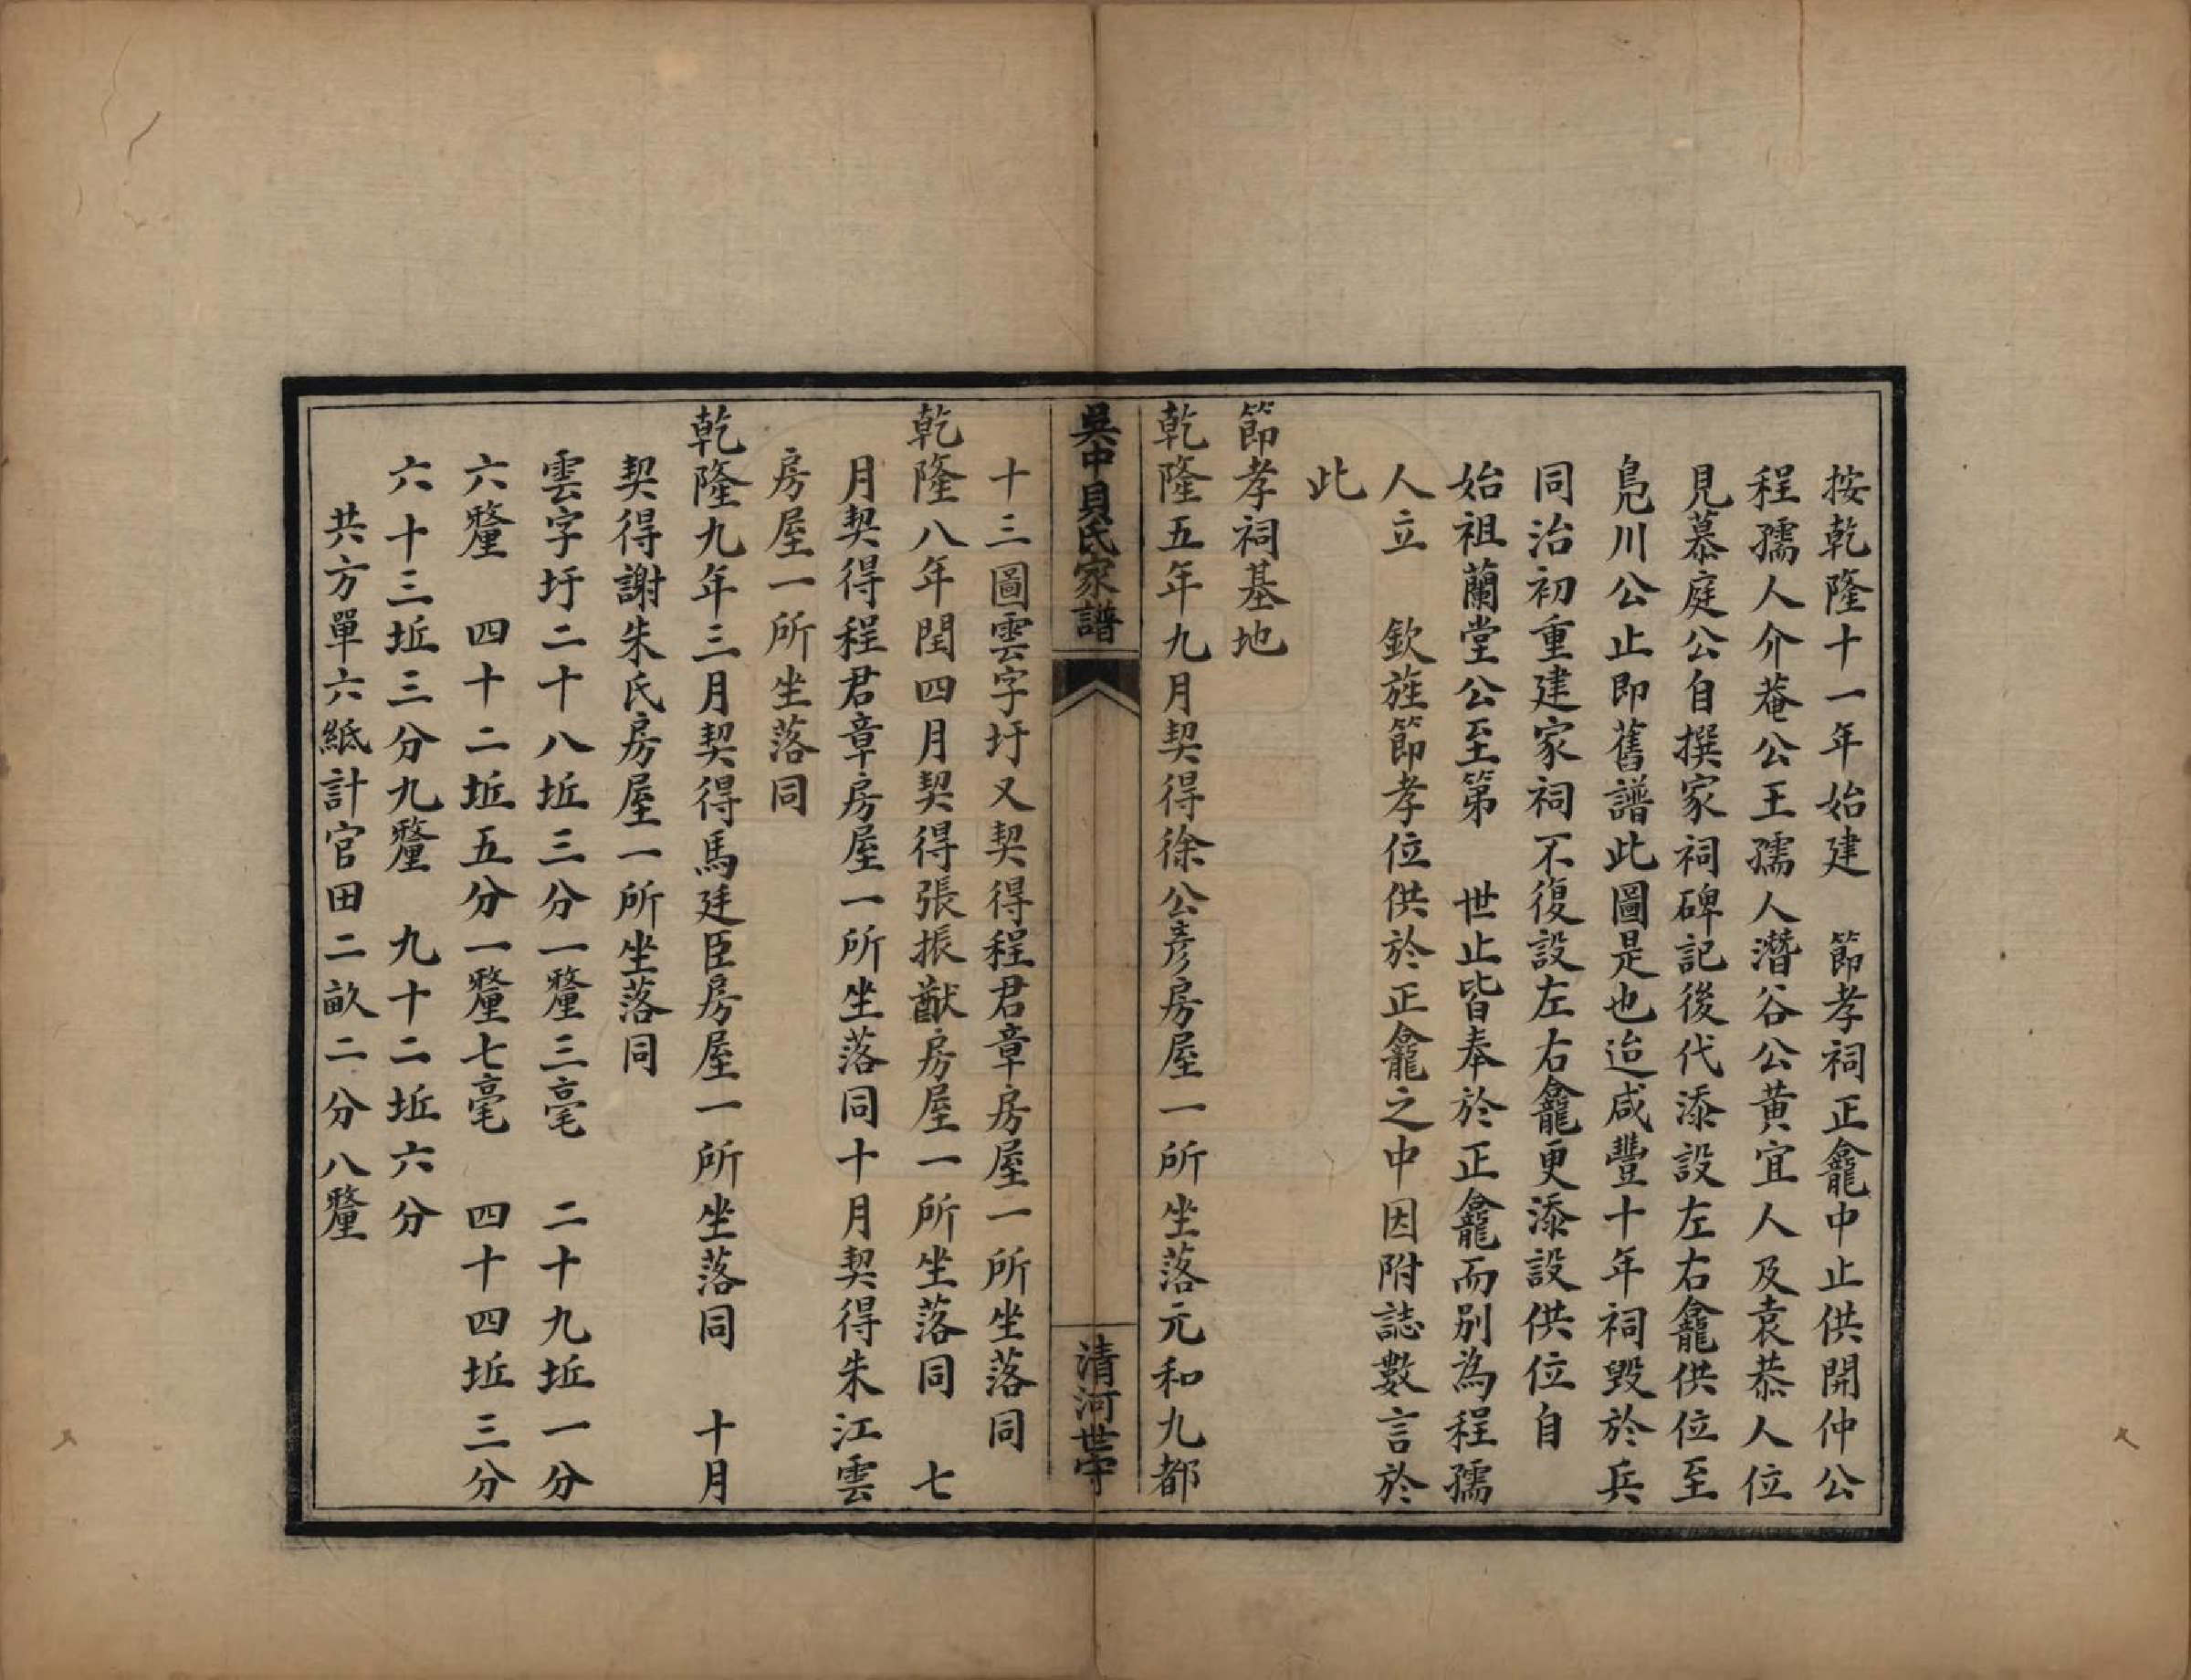 按乾隆十一年始建　節孝祠正龕中止供開仲公
程孺人介菴公王孺人濳谷公黃宜人及袁恭人位
見慕庭公自撰家祠碑記後代添設左右龕供位至
鳧川公止即舊譜此圖是也迨咸豐十年祠毀於兵
同治初重建家祠不復設左右龕更添設供位自
始祖蘭堂公至第　世止皆奉於正龕而別為程孺
人立　欽旌節孝位供於正龕之中因附誌數言於
此
節孝祠基地
乾隆五年九月契得徐公彥房屋一所坐落元和九都
吳中貝氏家譜
清河世守
十三圖雲字圩又契得程君章房屋一所坐落同
乾隆八年閏四月契得張振猷房屋一所坐落同　七
月契得程君章房屋一所坐落同十月契得朱江雲
房屋一所坐落同
乾隆九年三月契得馬廷臣房屋一所坐落同　十月
契得謝朱氏房屋一所坐落同
雲字圩二十八坵三分一釐三毫　二十九坵一分
六釐　四十二坵五分一釐七毫　四十四坵三分
六十三坵三分九釐　九十二坵六分
共方單六紙計官田二畝二分八釐